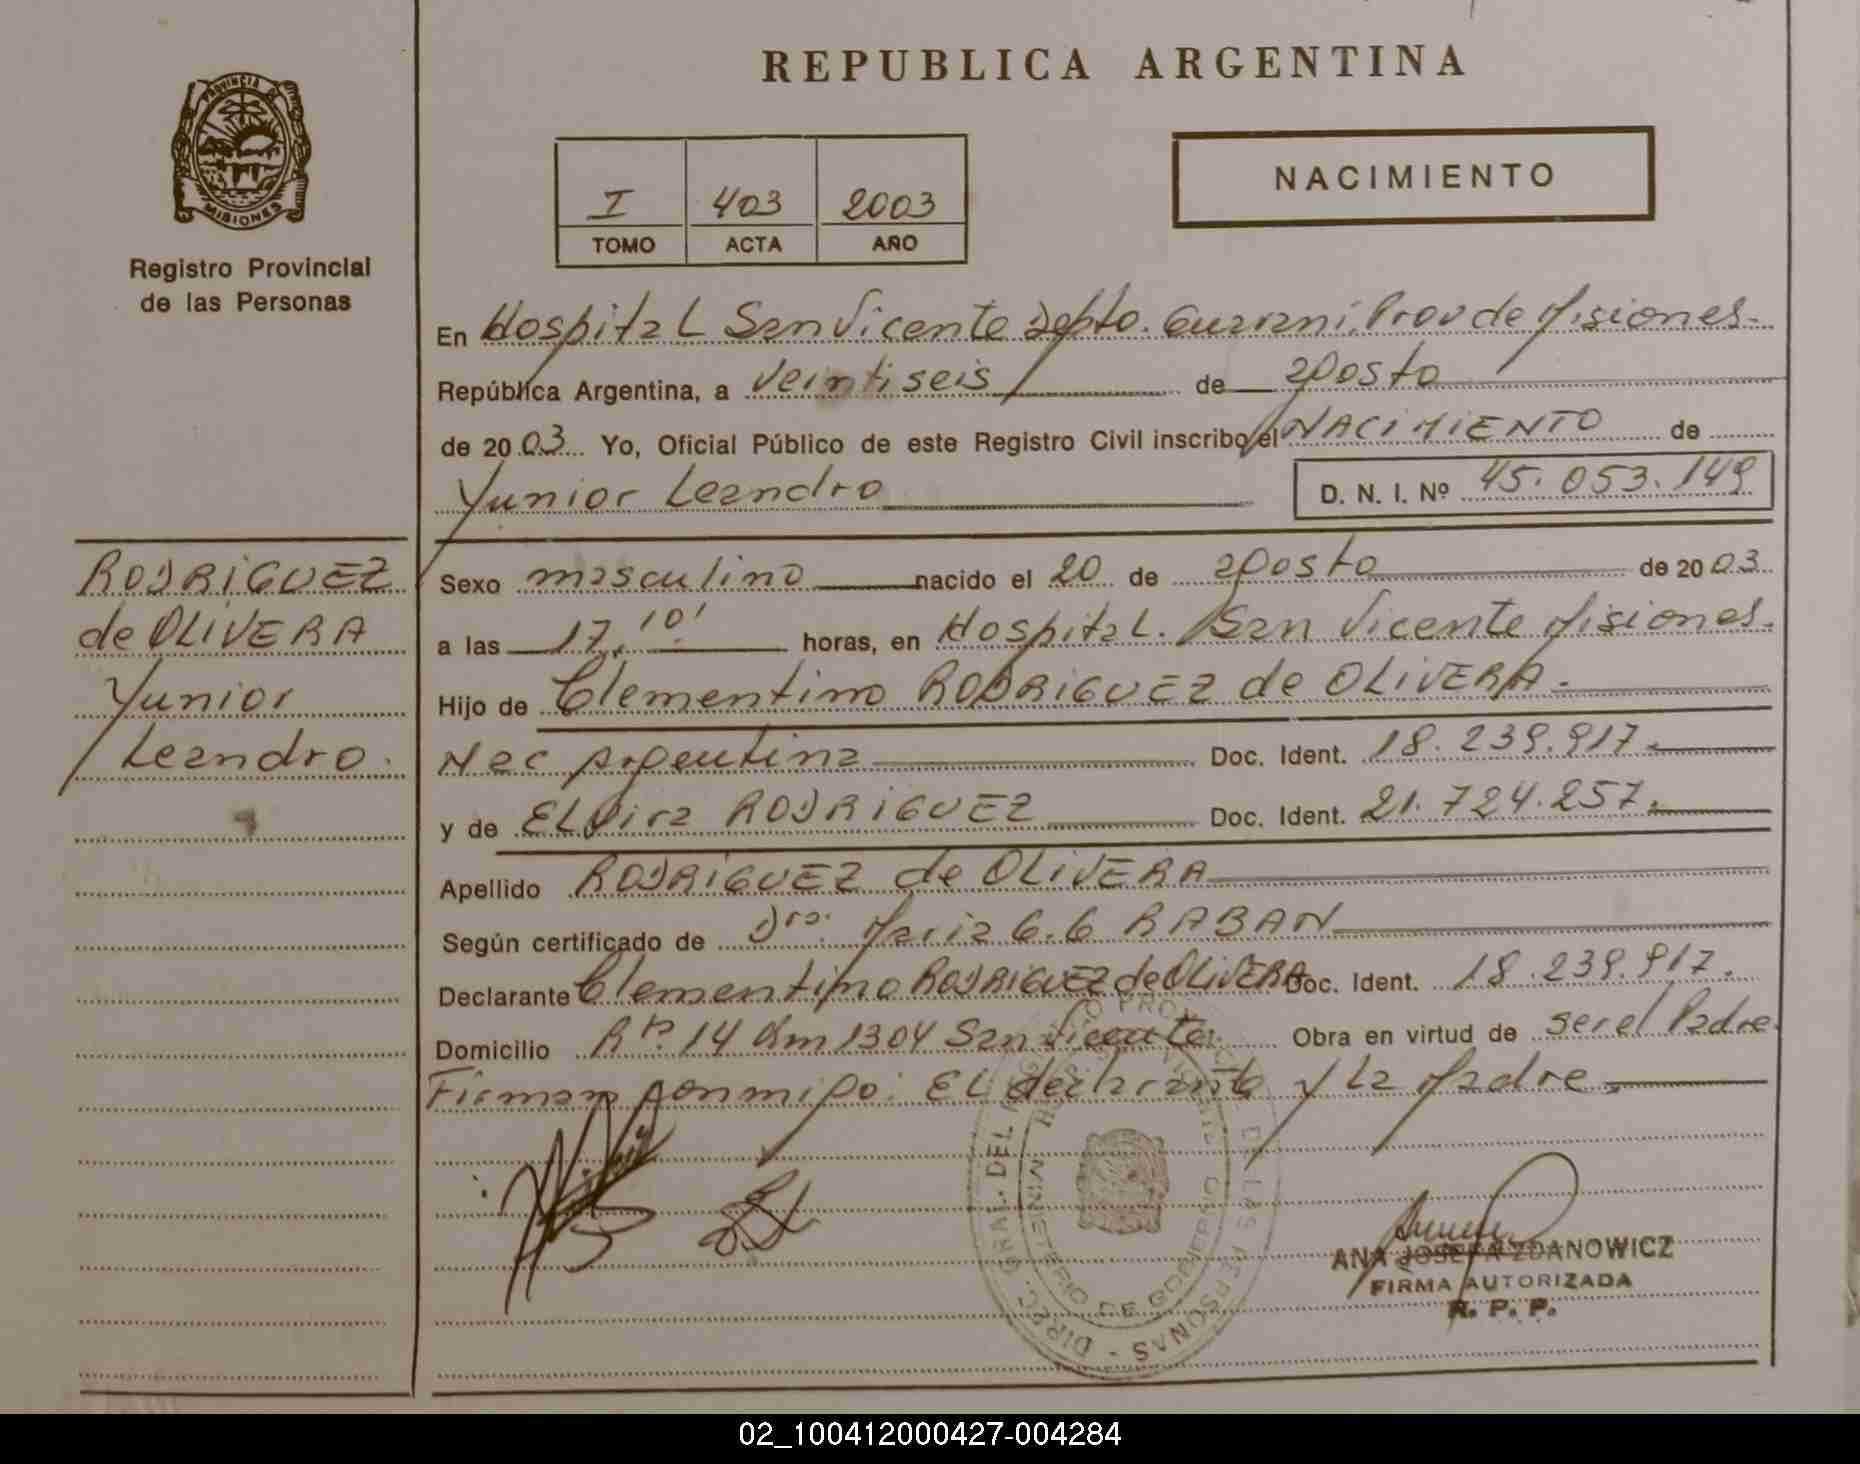 PROVINCIA DE
MISIONES
Registro Provincial
de las Personas
RODRIGUEZ
de OLIVERA
Yunior
Leandro.
REPUBLICA ARGENTINA
I 403 2003
TOMO ACTA AÑO
NACIMIENTO
En Hospital San Vicente Depto. Guarani. Prov de Misiones.
República Argentina, a veintiseis de agosto
de 2003 Yo, Oficial Público de este Registro Civil inscribo el NACIMIENTO de
Yunior Leandro D. N. I. Nº 45.053.149
Sexo masculino nacido el 20 de agosto de 2003
a las 17,10' horas, en Hospital. San Vicente Misiones.
Hijo de Clementino RODRIGUEZ de OLIVERA.
Nac Argentina Doc. Ident. 18.239.917.
y de ELvira RODRIGUEZ Doc. Ident. 21.724.257.
Apellido RODRIGUEZ de OLIVERA
Según certificado de Dra. Maria G.G RABAN
Declarante Clementino RODRIGUEZ de OLIVERA Doc. Ident. 18.239.917.
Domicilio Rta. 14 Km 1304 San Vicente. Obra en virtud de ser el Padre.
Firman conmigo: EL declarante y La Madre.
DIREC. GRAL. DEL REGISTRO PROVINCIAL DE LAS PERSONAS -
MINISTERIO DE GOBIERNO
ANA JOSEFA ZDANOWICZ
FIRMA AUTORIZADA
R. P. P.
02_100412000427-004284